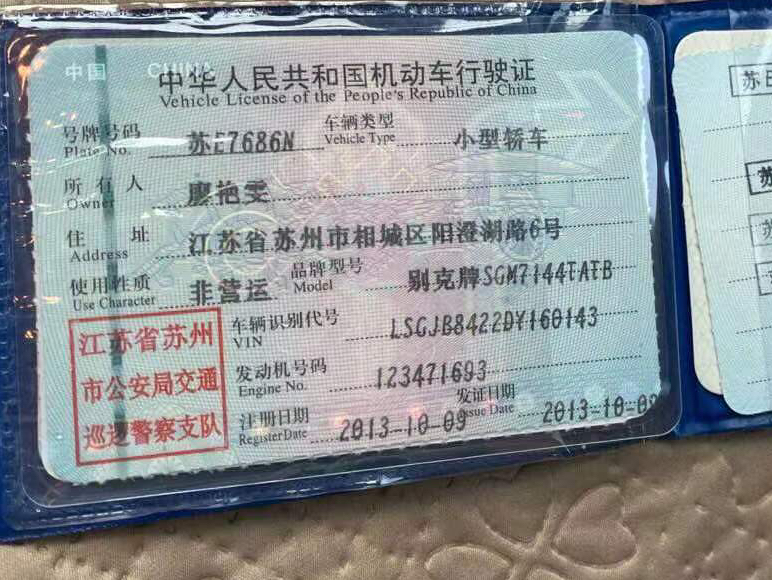 中国 CHINA
中华人民共和国机动车行驶证
Vehicle License of the People's Republic of China
号牌号码 苏E7686N 车辆类型 小型轿车
Plate No. Vehicle Type
所有人 廖艳雯
Owner
住址 江苏省苏州市相城区阳澄湖路6号
Address
使用性质 非营运 品牌型号 别克牌SGM7144TATB
Use Character Model
江苏省苏州
市公安局交通
巡逻警察支队
车辆识别代号 LSGJB8422DY160143
VIN
发动机号码 123471693
Engine No.
注册日期 2013-10-09 发证日期 2013-10-09
Register Date Issue Date